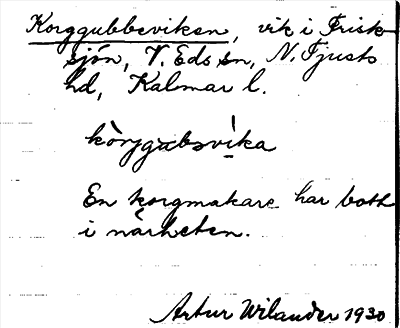 Korggubbeviken, vik i Frisk-
sjön, V. Eds sn, N. Tjusts
hd, Kalmar l.
kòrjgubsvíka
En korgmakare har bott
i närheten.
Artur Wilander 1930